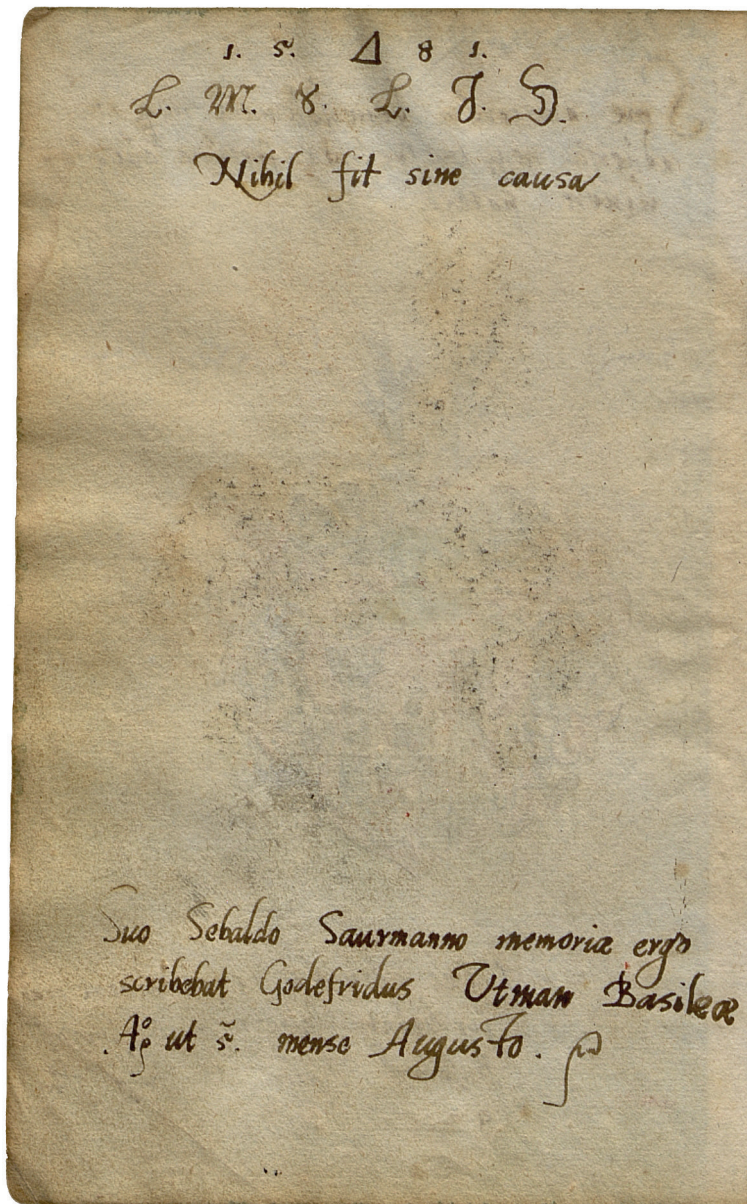 1. 5. Δ 8 1.
L. M. 8. L. J. D.
Nihil fit sine causa
Suo Sebaldo Saurmanno memoriæ ergo
scribebat Godefridus Utman Basileæ
Aº ut s̃. mense Augusto.